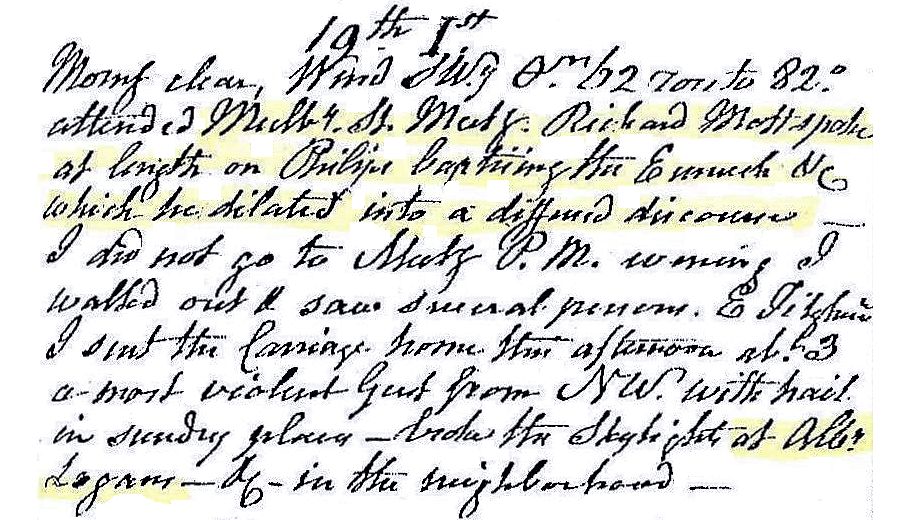 19th 1st
Morng clear, Wind SWy Orn 62 rose to 82°
attended Mulby. St. Meetg. Richard Mott spoke
at length on Philip baptizing the Eunuch &c
which he dilated into a diffused discourse —
I did not go to Meetg P.M. evening I
walked out & saw several persons. E
I sent the Carriage home this afternoon abt. 3
a most violent Gust from NW. with hail
in sundry places — broke the Skylights at Albr.
Logans — &c — in the neighborhood —